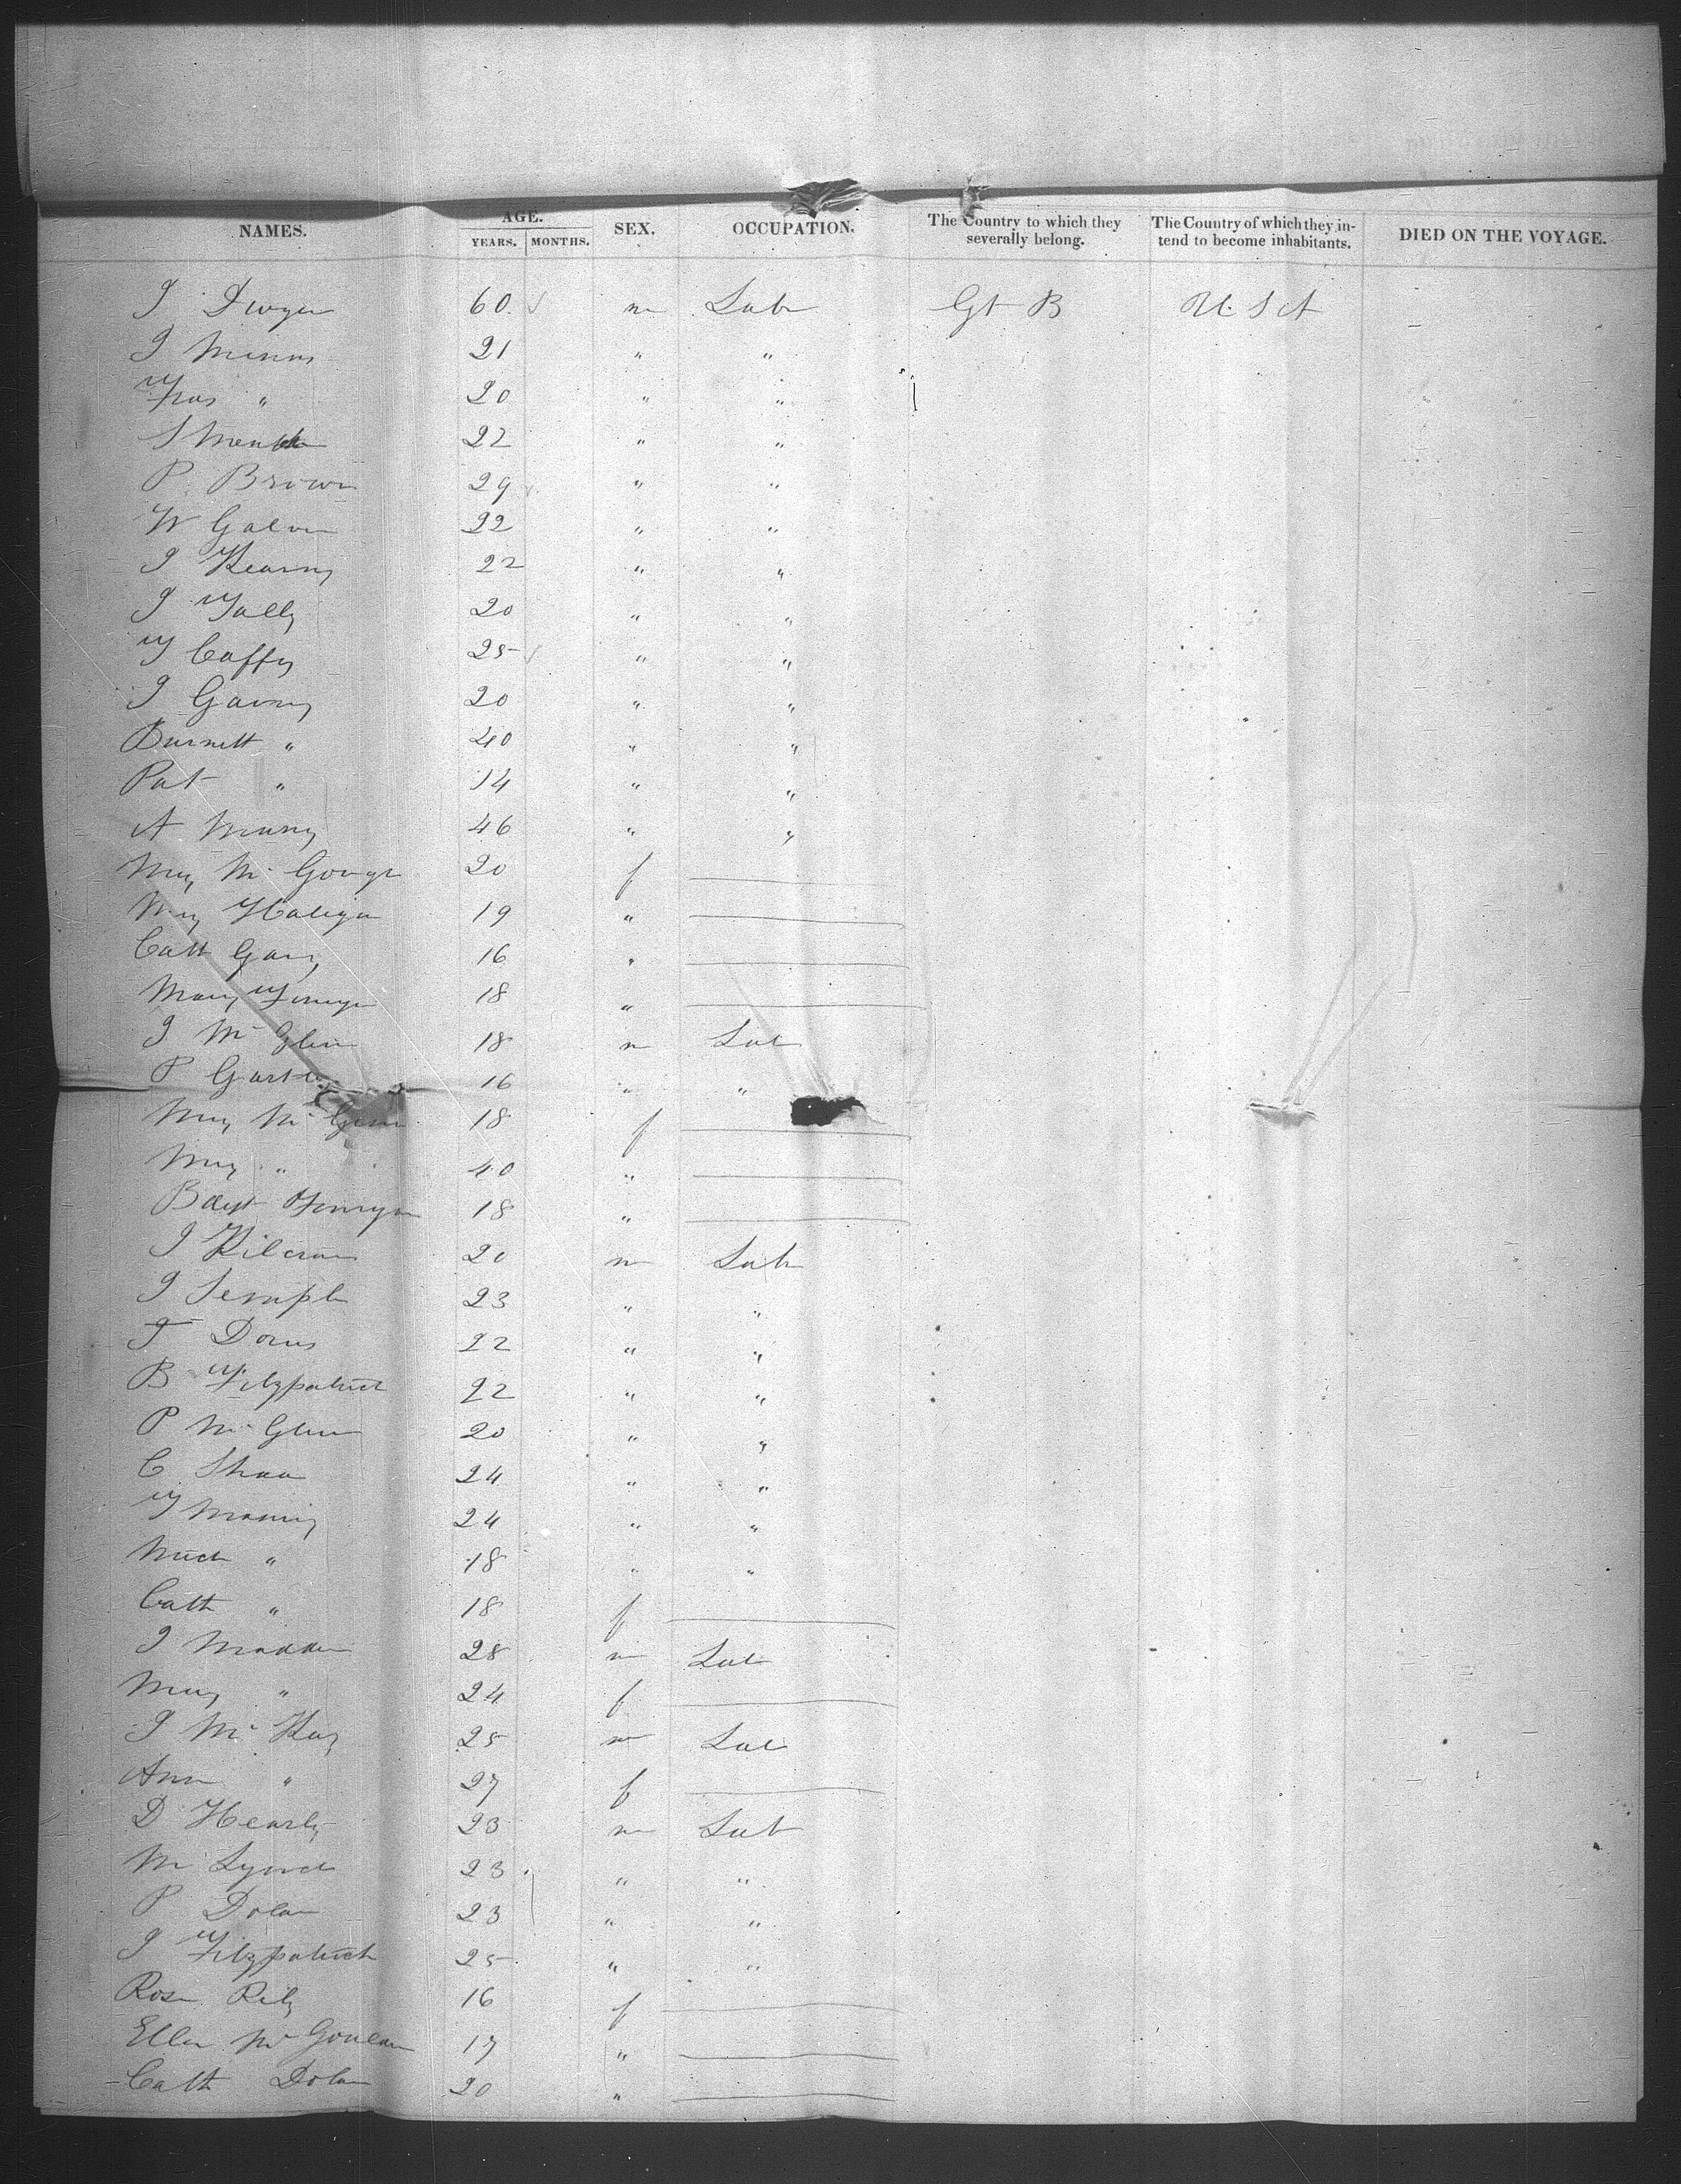 NAMES. AGE. YEARS. MONTHS. SEX. OCCUPATION. The Country to which they severally belong. The Country of which they intend to become inhabitants. DIED ON THE VOYAGE.
J Dwyer 60 m Lab Gt B U S A
J 21 " "
Fras " 20 " "
S 22 " "
P. Brown 29 " "
W Galvin 22 " "
J Kearny 22 " "
J Tully 20 " "
T Caffy 25 " "
J Gavny 20 " "
Burnett " 40 " "
Pat " 14 " "
A 46 " "
Mary Mc 20 f
Mary Haligan 19 "
Cath 16 "
Mary 18 "
J Mc Glin 18 m Lab
P 16 " "
Mary Mc 18 f
Mary " 40 "
18 "
J Kilcran 20 m Lab
J Semple 23 " "
T 22 " "
B Fitzpatrick 22 " "
P Mc Glin 20 " "
C Shaw 24 " "
T 24 " "
Mich " 18 " "
Cath " 18 f
J Madden 28 m Lab
Mary " 24 f
J Mc Kay 25 m Lab
Ann " 27 f
D Hearly 23 m Lab
M Lynch 23 " "
P Dolan 23 " "
J Fitzpatrick 25 " "
Rose Rily 16 f
Ellen Mc 17 "
Cath Dolan 20 "